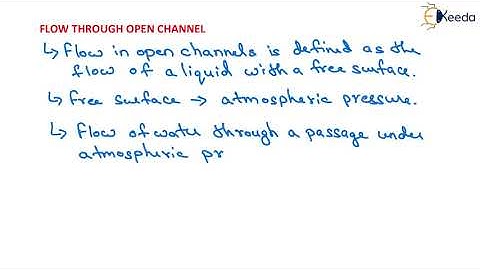 Ekeeda
FLOW THROUGH OPEN CHANNEL
↳ Flow in open channels is defined as the
flow of a liquid with a free surface.
↳ free surface → atmospheric pressure.
↳ Flow of water through a passage under
atmospheric pr